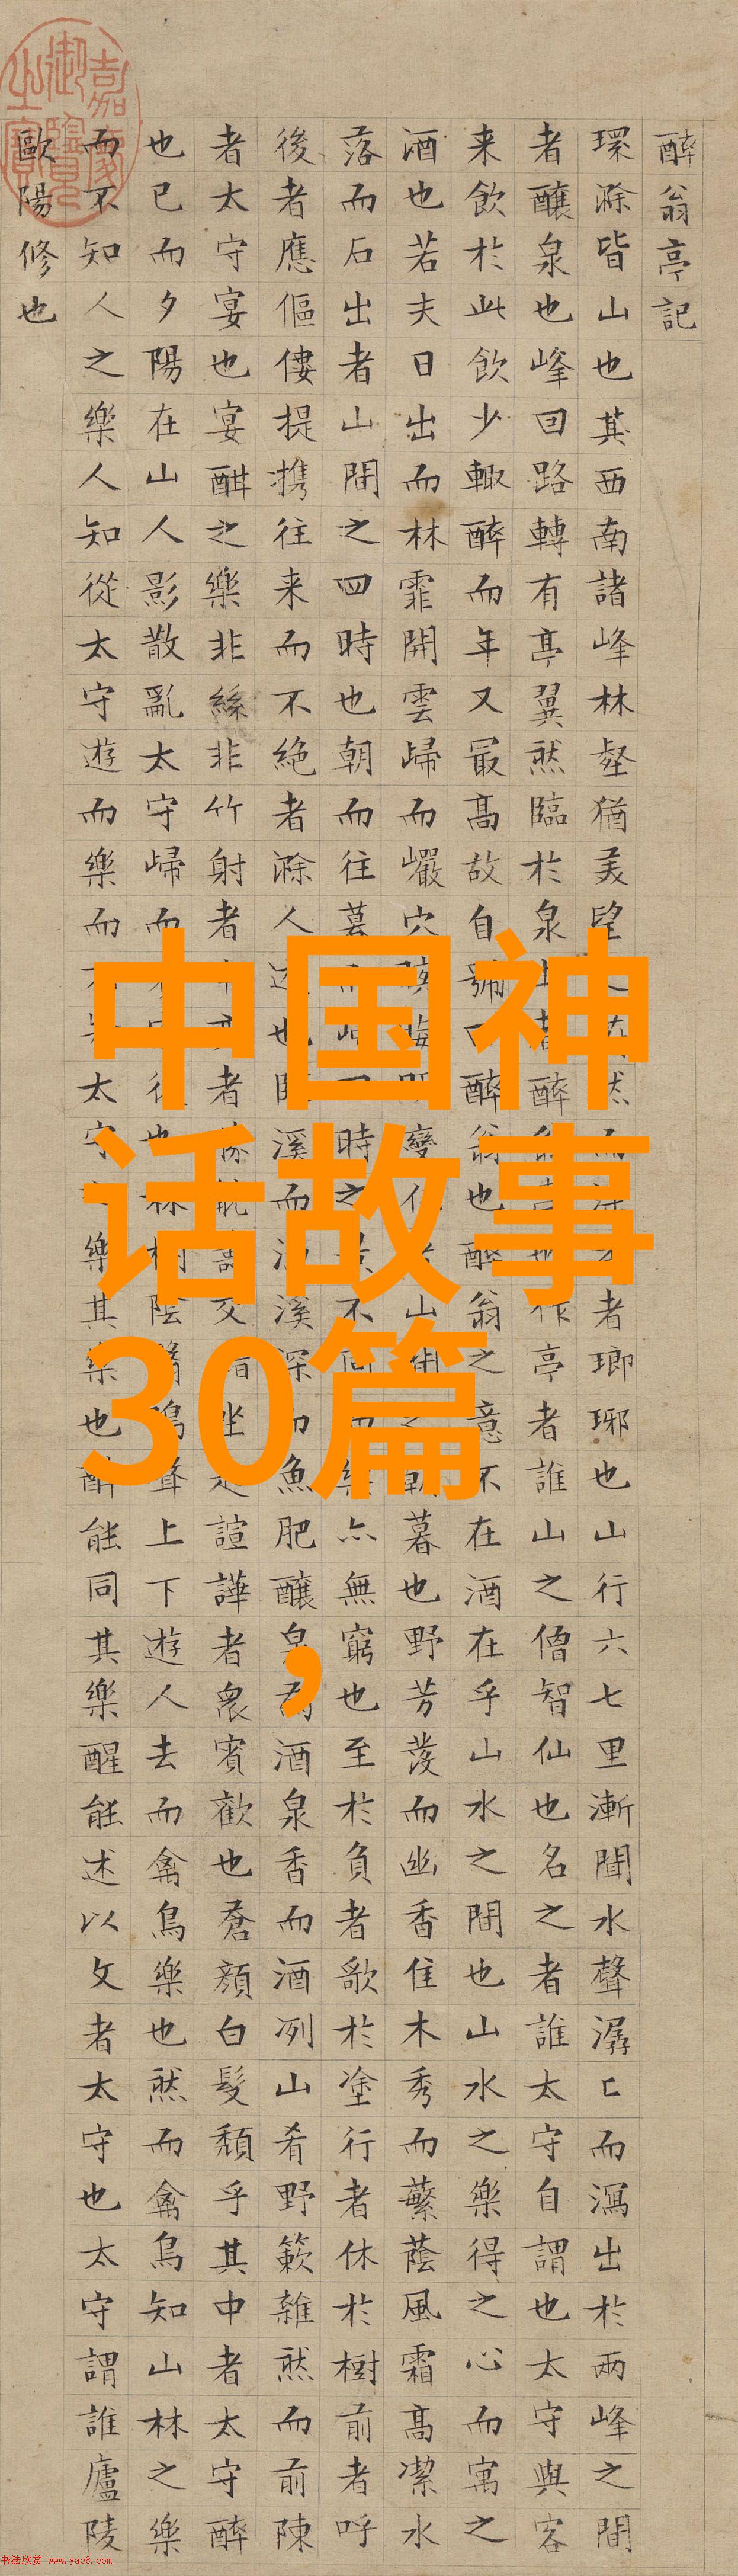 醉翁亭記
環滁皆山也其西南諸峰林壑猶美望然者瑯琊也山行六七里漸聞水聲潺匕而瀉出於兩峰之間
者釀泉也峰回路轉有亭翼然臨於泉者醉作亭者誰山之僧智仙也名之者誰太守自謂也太守與客
来飲於此飲少輒醉而年又最高故自號醉翁也醉翁之意不在酒在乎山水之間也山水之樂得之心而寓之
酒也若夫日出而林霏開雲歸而巖穴變山暮也野芳發而幽香佳木秀而蘩蔭風霜高潔水
落而石出者山間之四時也朝而往暮時之不亦無窮也至於負者歌於塗行者休於樹前者呼
後者應傴僂提携往来而不絕者滁人也溪而溪深而魚肥釀泉酒泉香而酒冽山肴野簌雜然而前陳
者太守宴也宴酣之樂非絲非竹射者者交坐諠譁者衆賓歡也蒼顔白髮頹乎其中者太守醉
也已而夕陽在山人影散亂太守歸而林陰聲上下遊人去而禽鳥樂也然而禽鳥知山林之樂
而不知人之樂人知從太守遊而樂而太守樂其樂也醉能同其樂醒能述以文者太守也太守謂誰廬陵
歐陽修也
中国神
话故事
30篇
，
书法欣赏 www.yac8.com